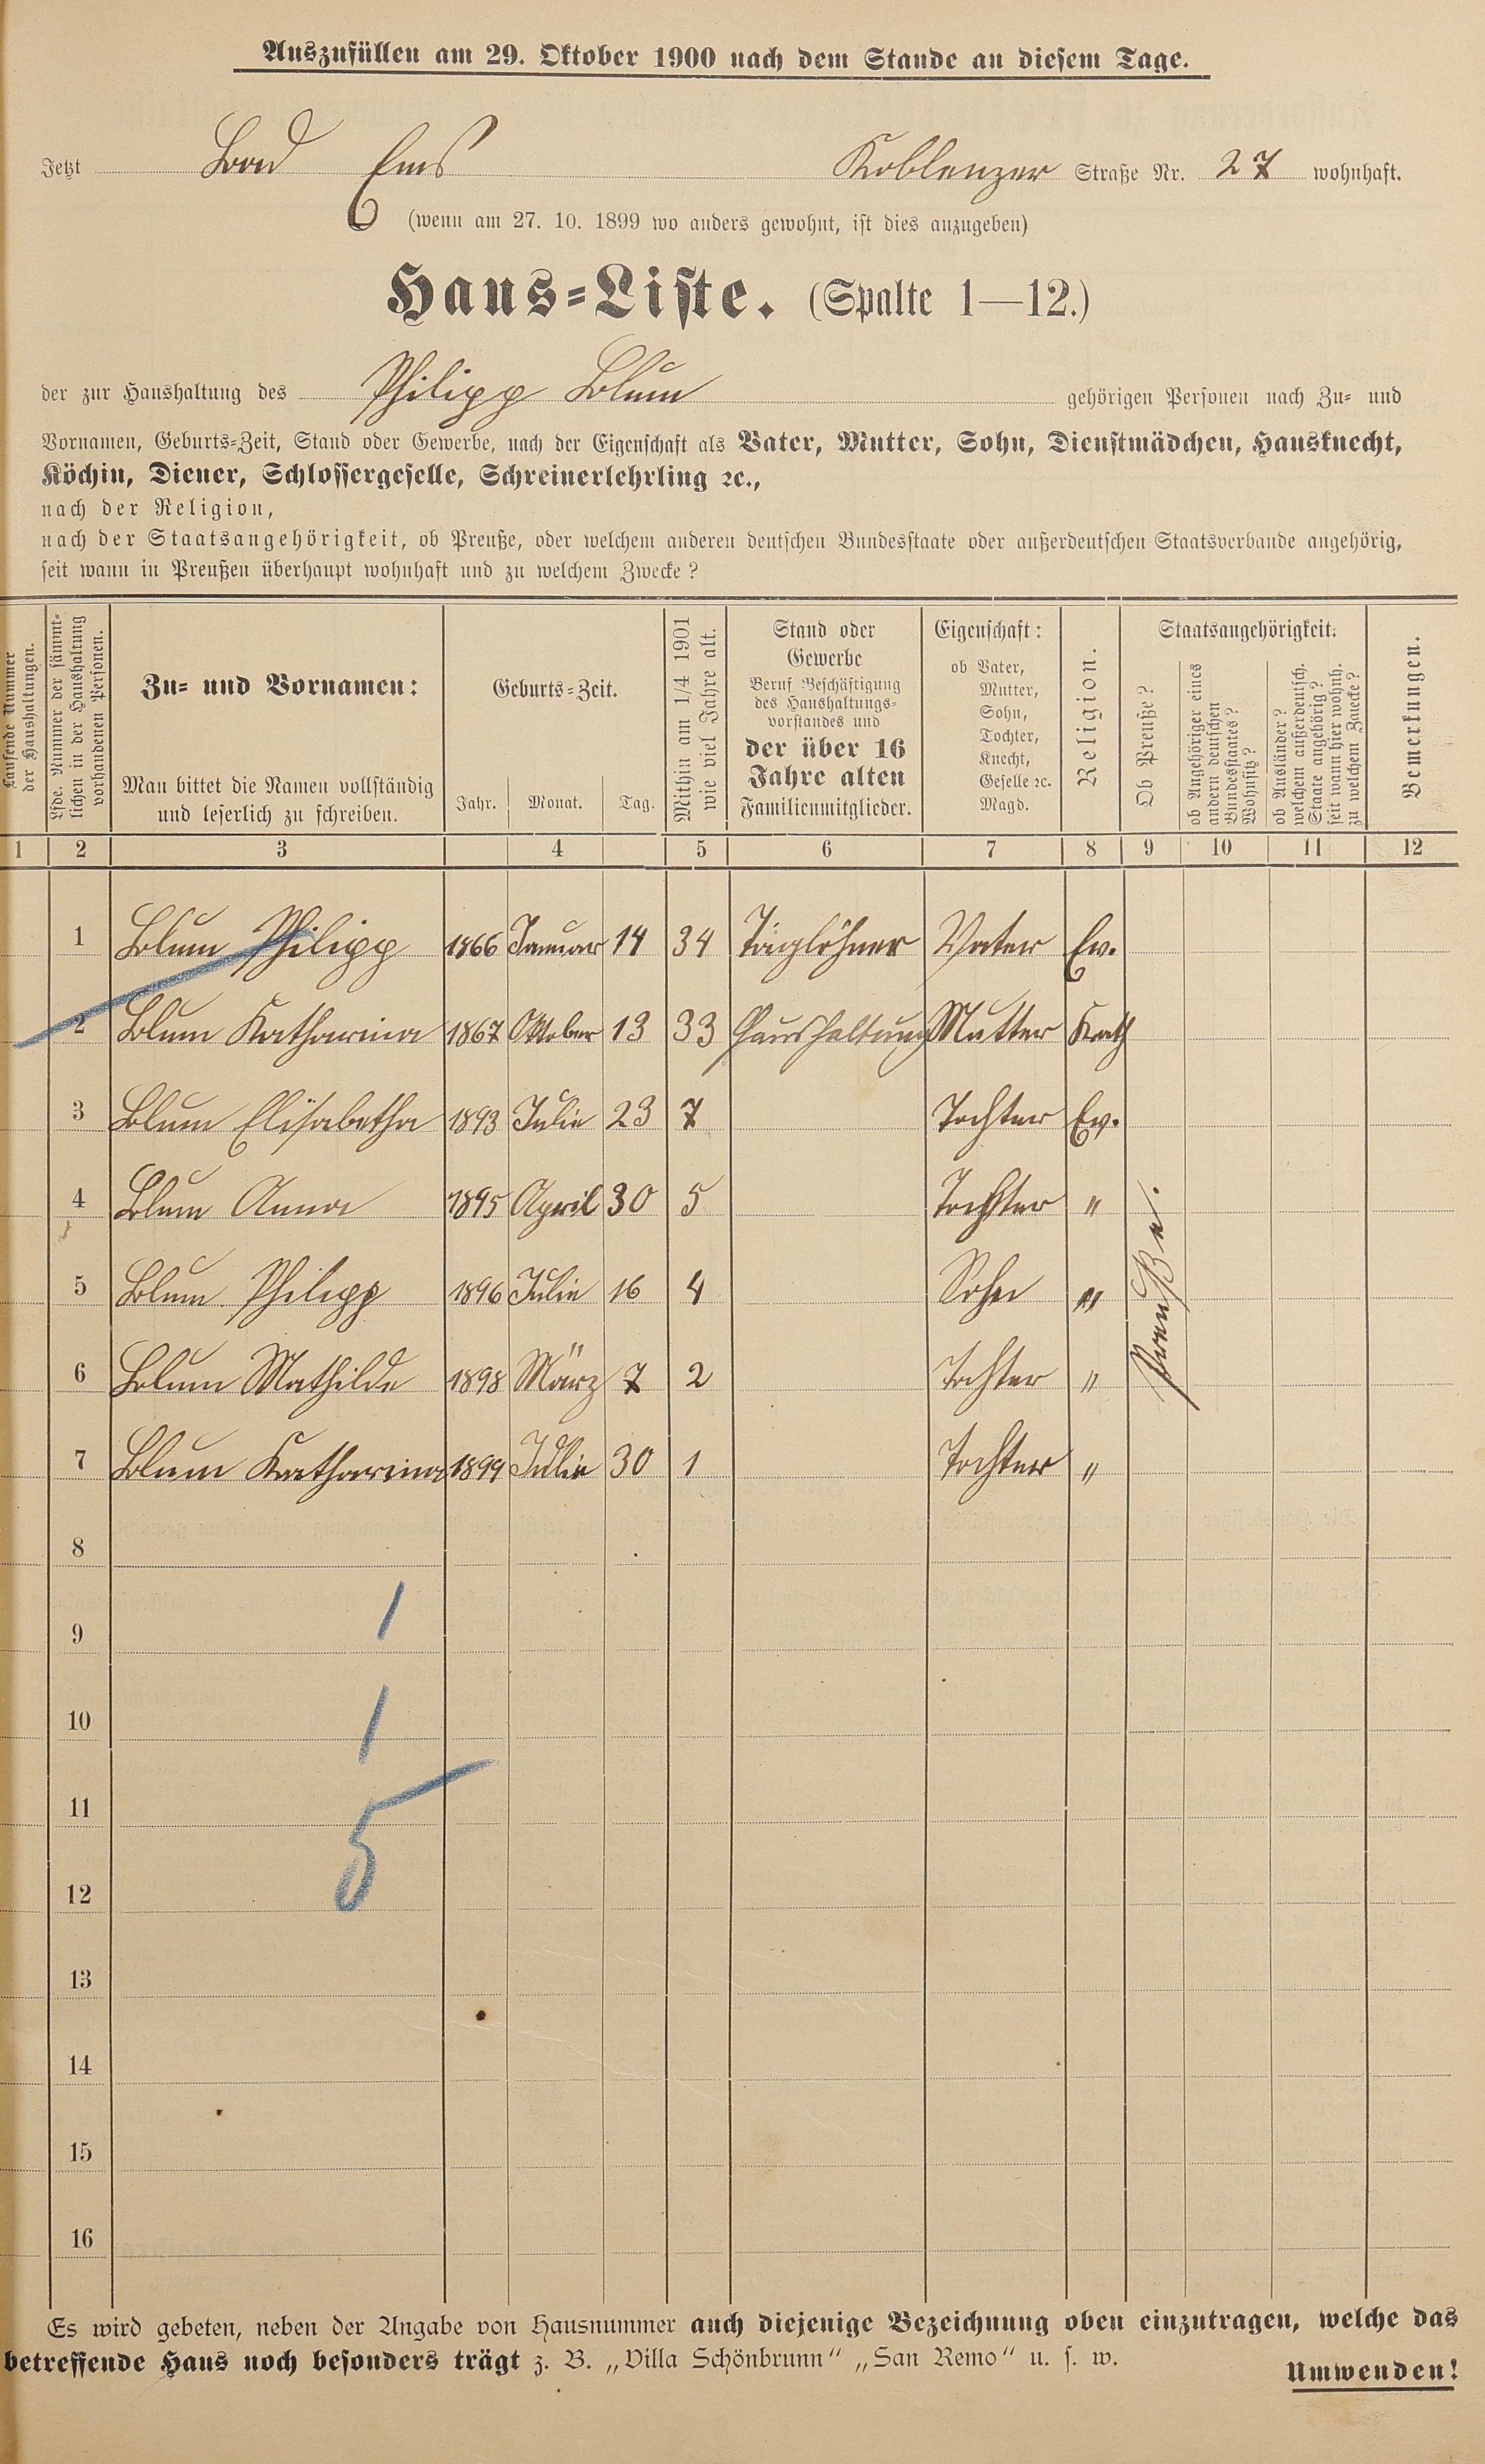 Auszufüllen am 29. Oktober 1900 nach dem Stande an diesem Tage.
Jetzt Bad Ems Koblenzer Straße Nr. 27 wohnhaft.
(wenn am 27. 10. 1899 wo anders gewohnt, ist dies anzugeben)
Haus-Liste. (Spalte 1—12.)
der zur Haushaltung des Philipp Blum gehörigen Personen nach Zu- und
Vornamen, Geburts-Zeit, Stand oder Gewerbe, nach der Eigenschaft als Vater, Mutter, Sohn, Dienstmädchen, Hausknecht,
Köchin, Diener, Schlossergeselle, Schreinerlehrling ꝛc.,
nach der Religion,
nach der Staatsangehörigkeit, ob Preuße, oder welchem anderen deutschen Bundesstaate oder außerdeutschen Staatsverbande angehörig,
seit wann in Preußen überhaupt wohnhaft und zu welchem Zwecke?
Laufende Nummer
der Haushaltungen.
Lfde. Nummer der sämmt-
lichen in der Haushaltung
vorhandenen Personen.
Zu- und Vornamen:
Man bittet die Namen vollständig
und leserlich zu schreiben.
Geburts-Zeit.
Jahr. Monat. Tag.
Mithin am 1/4 1901
wie viel Jahre alt.
Stand oder
Gewerbe
Beruf Beschäftigung
des Haushaltungs-
vorstandes und
der über 16
Jahre alten
Familienmitglieder.
Eigenschaft:
ob Vater,
Mutter,
Sohn,
Tochter,
Knecht,
Geselle ꝛc.
Magd.
Religion.
Staatsangehörigkeit.
Ob Preuße?
ob Angehöriger eines
andern deutschen
Bundesstaates?
Wohnsitz?
ob Ausländer?
welchem außerdeutsch.
Staate angehörig?
seit wann hier wohnh.
zu welchem Zwecke?
Bemerkungen.
1 2 3 4 5 6 7 8 9 10 11 12
1 Blum Philipp 1866 Januar 14 34 Taglöhner Vater Ev.
2 Blum Katharina 1867 Oktober 13 33 Haushaltung Mutter Kath
3 Blum Elisabetha 1893 Julie 23 7 Tochter Ev.
4 Blum Anna 1895 April 30 5 Tochter "
5 Blum Philipp 1896 Julie 16 4 Sohn "
Preuße.
6 Blum Mathilde 1898 März 7 2 Tochter "
7 Blum Katharina 1899 Julie 30 1 Tochter "
8
9 1
10 1
11
5
12
13
14
15
16
Es wird gebeten, neben der Angabe von Hausnummer auch diejenige Bezeichnung oben einzutragen, welche das
betreffende Haus noch besonders trägt z. B. „Villa Schönbrunn“ „San Remo“ u. s. w.
Umwenden!